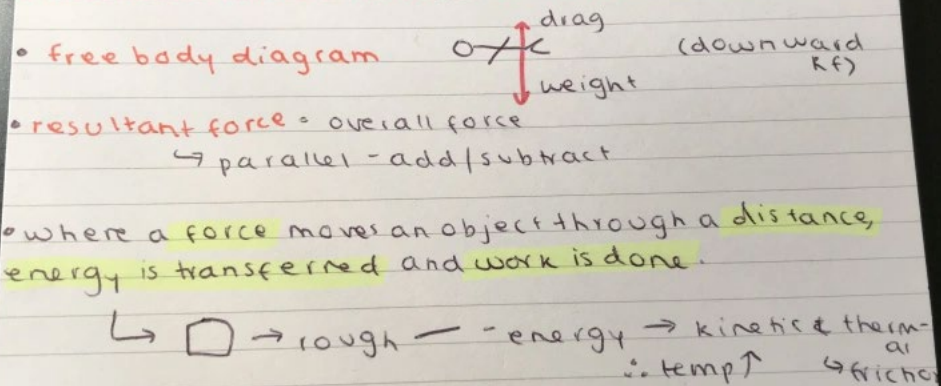 drag
• free body diagram (downward
Rf)
weight
• resultant force = overall force
↳ parallel - add/subtract
• where a force moves an object through a distance,
energy is transferred and work is done.
↳ → rough — - energy → kinetic & therm-
al
∴ temp↑ ↳